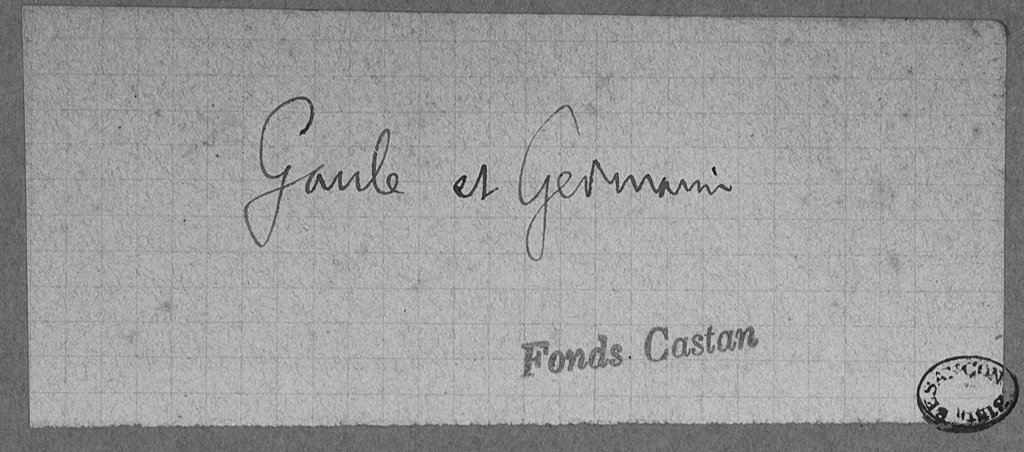 Gaule et Germani
Fonds Castan
BESANÇON
BIBL